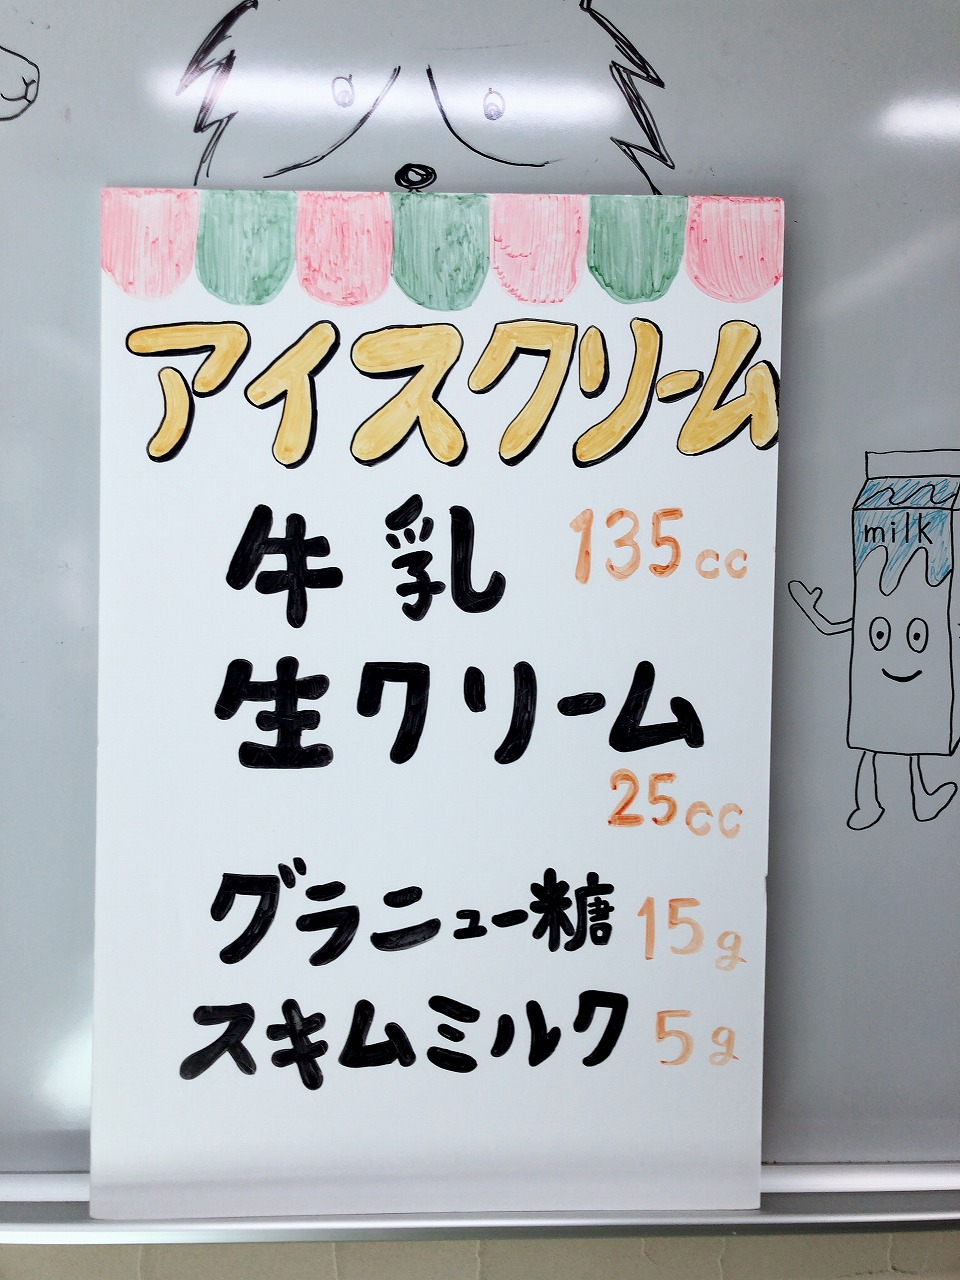 アイスクリーム
牛乳 135cc
milk
生クリーム
25cc
グラニュー糖 15g
スキムミルク 5g